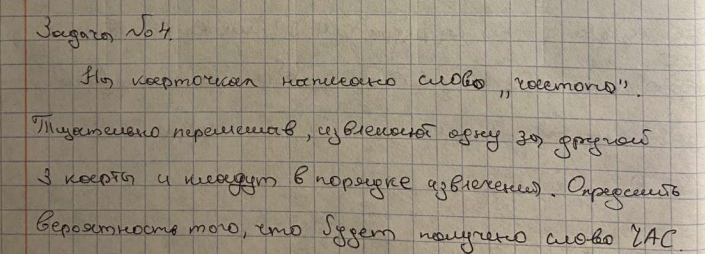 Задача №4.
На карточках написано слово „частота".
Тщательно перемешав, извлекают одну за другой
3 карты и кладут в порядке извлечения. Определить
вероятность того, что будет получено слово ЧАС.